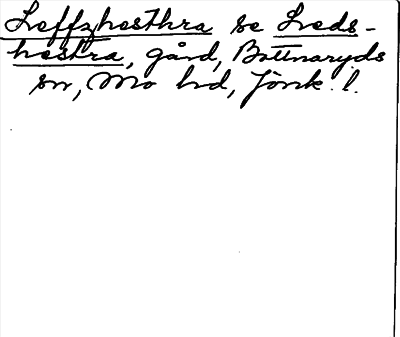 Leffzhesthra se Leds-
hestra, gård, Bottnaryds
sn, Mo hd, Jönk. l.